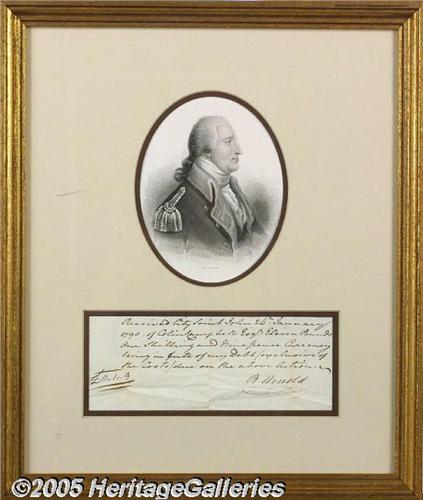 Received City Saint John 26th January
1790 of Colin Campbell Esqr Eleven Pounds
One Shilling and Nine pence Currency
being in full of my Debt (exclusive of
the Costs) due on the above Action.
B. Arnold
©2005 HeritageGalleries